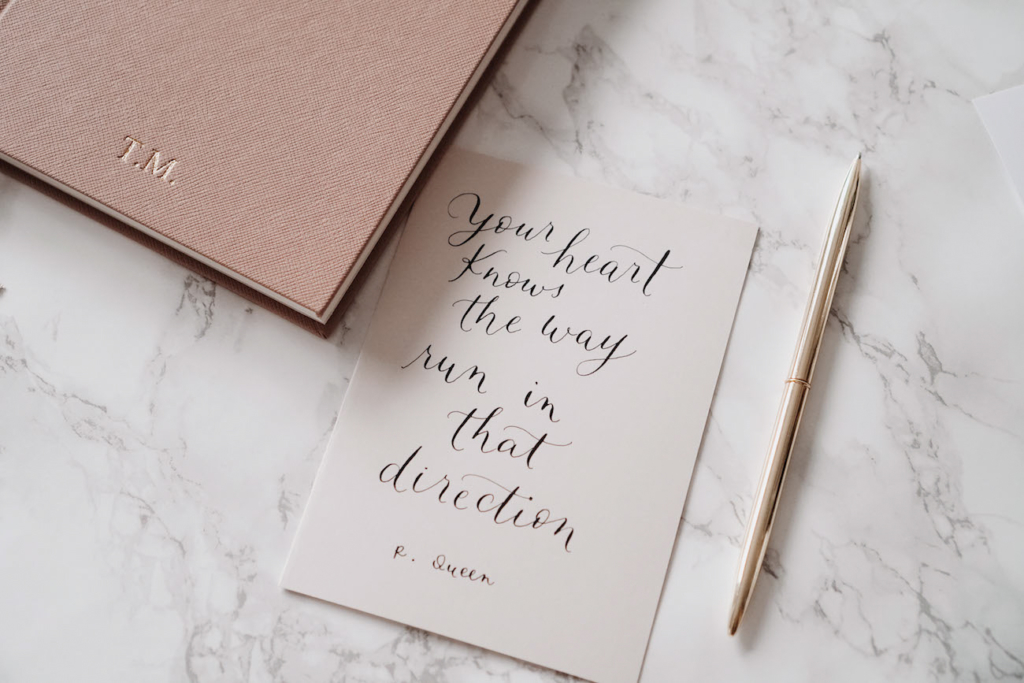 T.M.
Your heart
Knows
the way
run in
that
direction
R. Queen